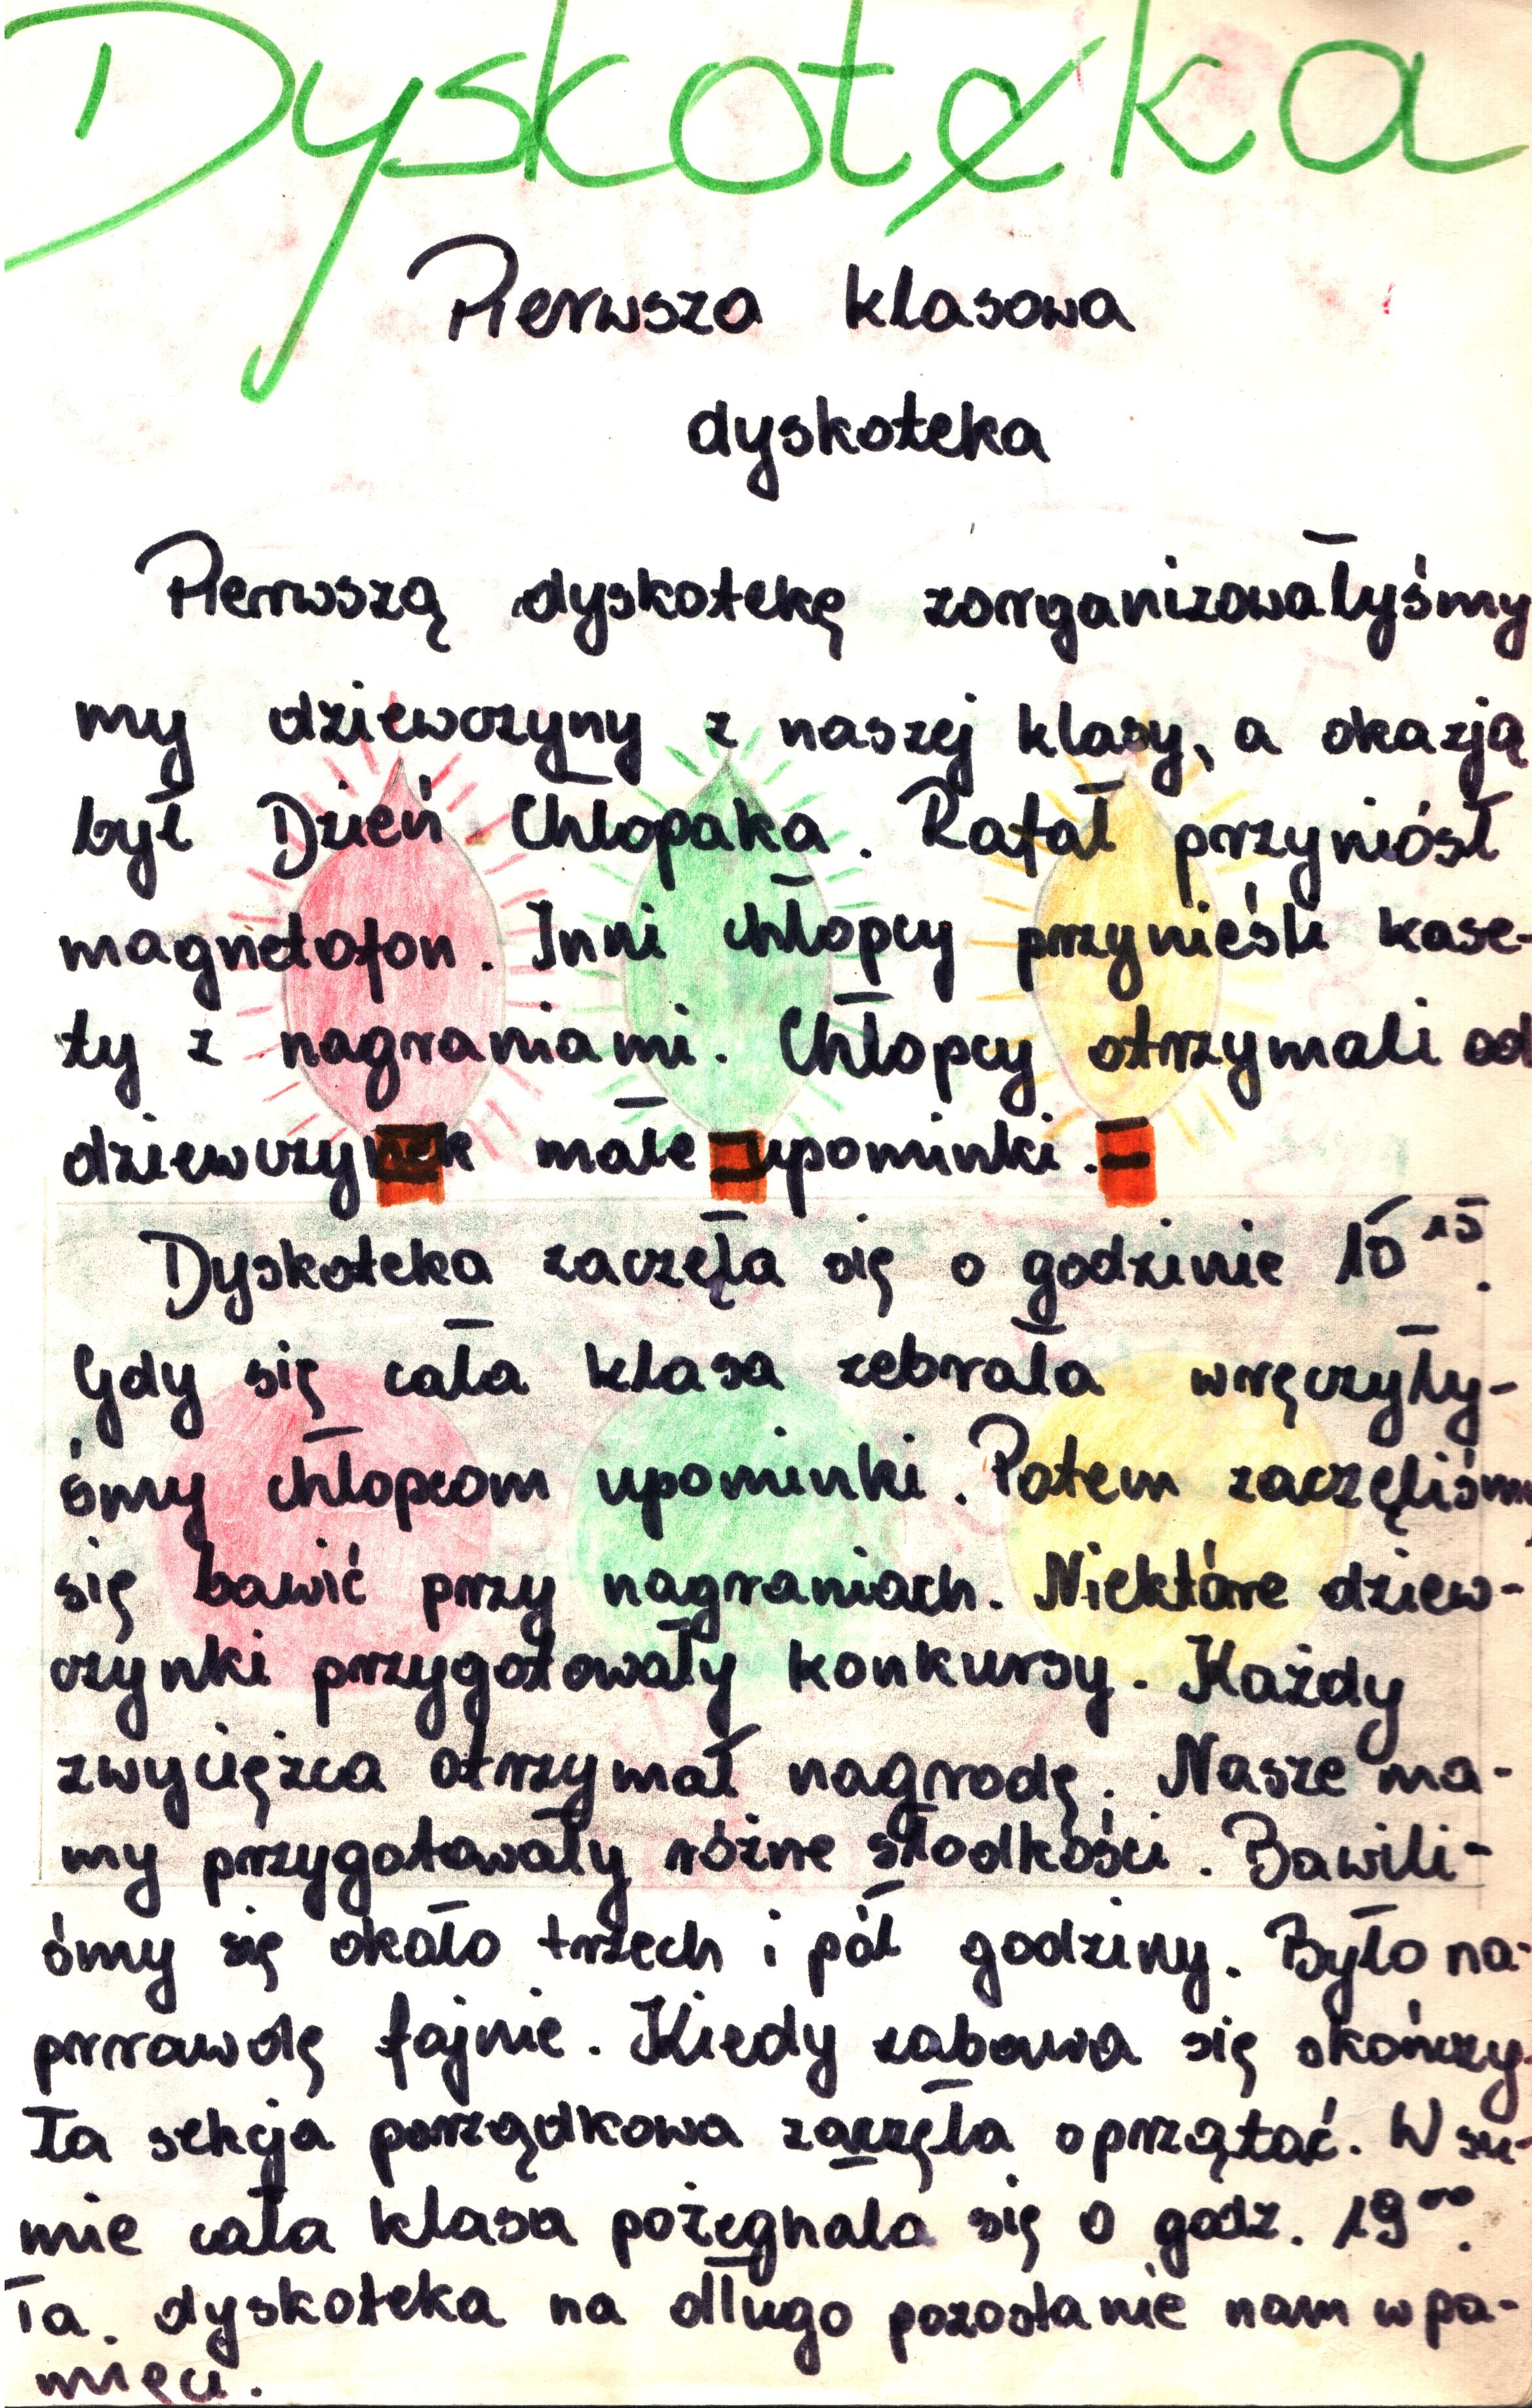 Dyskoteka
Pierwsza klasowa
dyskoteka
Pierwszą dyskotekę zorganizowałyśmy
my dziewczyny z naszej klasy, a okazją
był Dzień Chłopaka. Rafał przyniósł
magnetofon. Inni chłopcy przynieśli kase-
ty z nagraniami. Chłopcy otrzymali od
dziewczynek małe upominki.
Dyskoteka zaczęła się o godzinie 15¹⁵.
Gdy się cała klasa zebrała wręczyły-
śmy chłopcom upominki. Potem zaczęliśmy
się bawić przy nagraniach. Niektóre dziew-
czynki przygotowały konkursy. Każdy
zwycięzca otrzymał nagrodę. Nasze ma-
my przygotowały różne słodkości. Bawili-
śmy się około trzech i pół godziny. Było na-
prawdę fajnie. Kiedy zabawa się skończy-
ła sekcja porządkowa zaczęła oprzątać. W su-
mie cała klasa pożegnała się o godz. 19⁰⁰.
Ta dyskoteka na długo pozostanie nam w pa-
mięci.